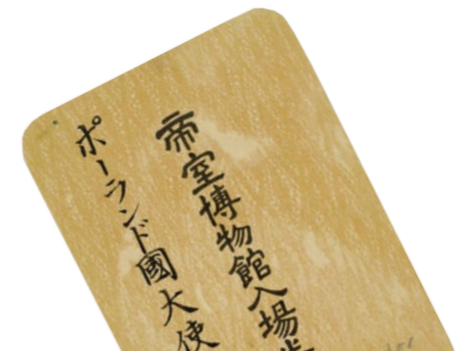 帝室博物館入場
ポーランド國大使